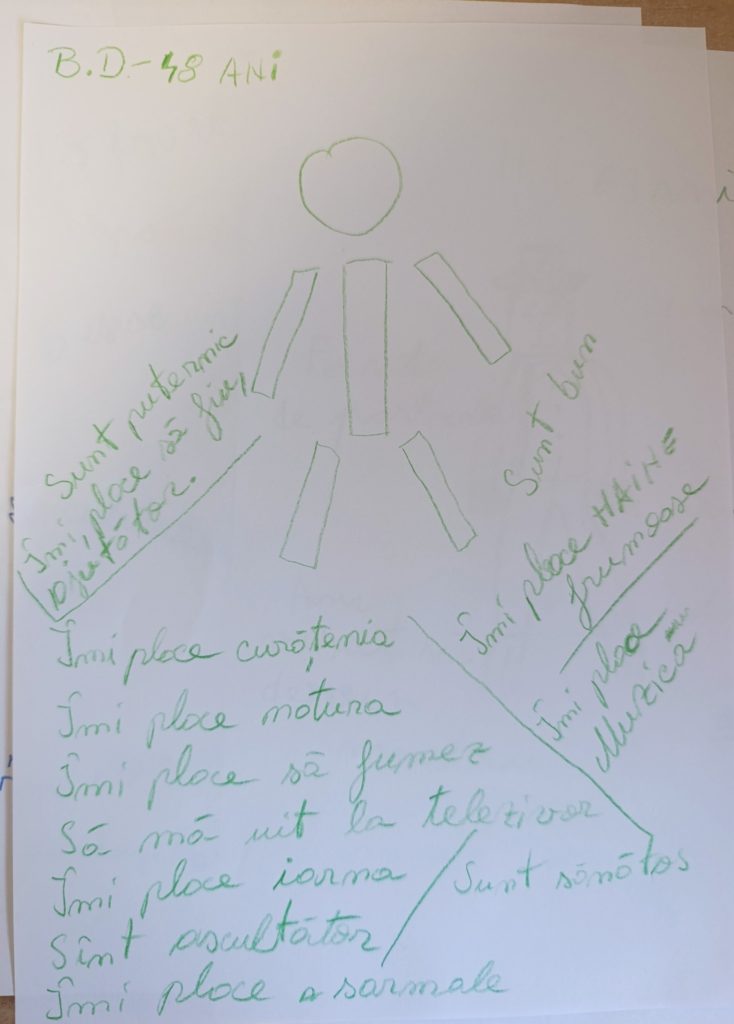 B.D.- 48 ANi
Sunt puternic
Îmi place să fiu,
ajutător.
Sunt bun
Îmi place HAiNE
frumoase
Îmi place
Muzica
Îmi place curățenia
Îmi place natura
Îmi place să fumez
Să mă uit la telezivor
Îmi place iarna
Sunt sănătos
Sînt ascultător
Îmi place a sarmale